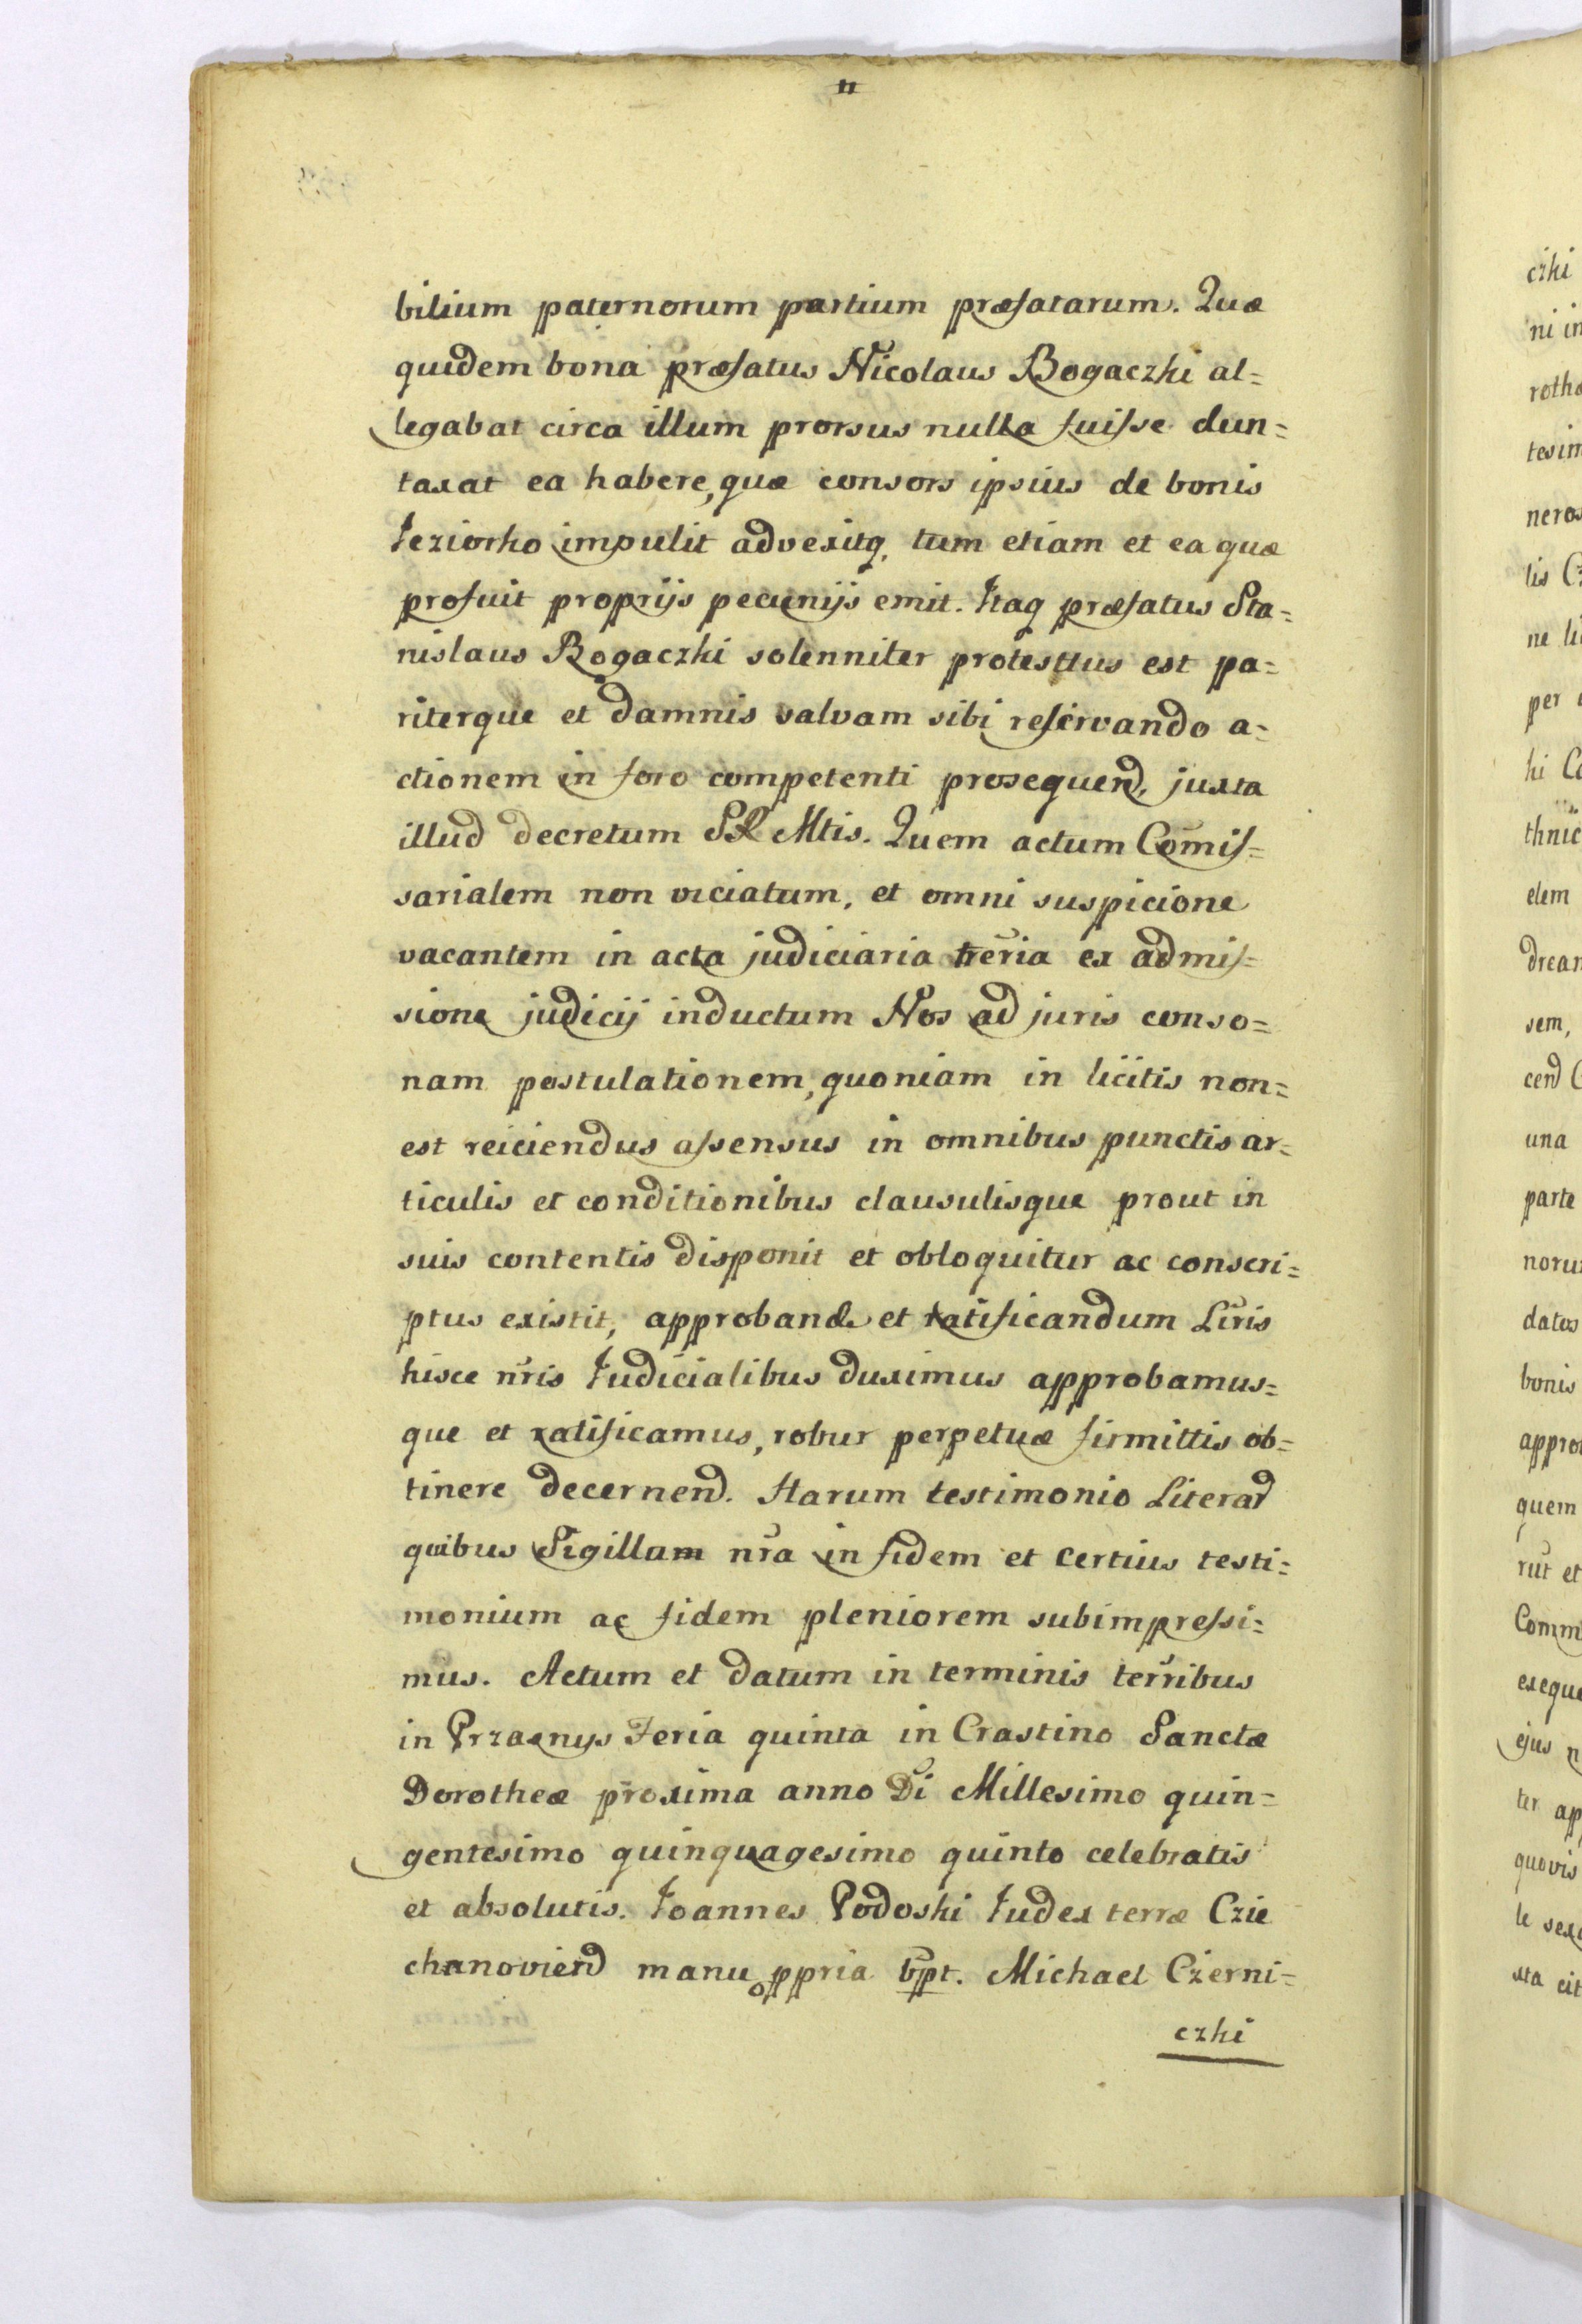 bilium paternorum partium præfatarum. Quæ
quidem bona præfatus Nicolaus Bogaczki al=
legabat circa illum prorsus nulla fuisse dun=
taxat ea habere, quæ consors ipsius de bonis
Jeziorko impulit advexitq, tum etiam et ea quæ
profuit proprijs pecunijs emit. Itaq præfatus Sta=
nislaus Bogaczki solenniter protesttus est pa=
riterque et damnis salvam sibi reservando a=
ctionem in foro competenti prosequend. juxta
illud decretum SR Mtis. Quem actum Comis=
sarialem non viciatum, et omni suspicione
vacantem in acta judiciaria treria ex admis=
sione judicij inductum Nos ad juris conso=
nam postulationem, quoniam in licitis non=
est reiciendus assensus in omnibus punctis ar=
ticulis et conditionibus clausulisque prout in
suis contentis disponit et obloquitur ac conscri=
ptus existit, approband et ratificandum Lris
hisce nris Judicialibus duximus approbamus=
que et ratificamus, robur perpetuæ firmittis ob=
tinere decernend. Harum testimonio Literard
quibus Sigillum nra in fidem et certius testi=
monium ac fidem pleniorem subimpressi=
mus. Actum et datum in terminis terribus
in Przasnys Feria quinta in Crastino Sanctæ
Dorotheæ proxima anno Di Millesimo quin=
gentesimo quinquagesimo quinto celebratis
et absolutis. Joannes Podoski Judex terræ Czie
chanoviend manu ppria Spt. Michael Czerni=
czki
czki
ni in
tesim
lis
per
hi
elem
sem,
cend
una
parte
datos
bonis
quem
rut et
ejus
ter ap
quovis